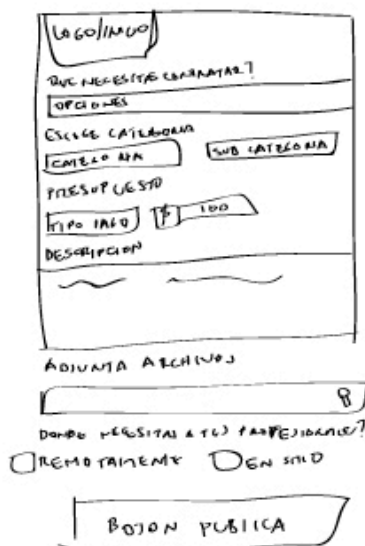 LOGO/INICIO
QUE NECESITAS CONTRATAR?
OPCIONES
ESCOGE CATEGORIA
CATEGORIA SUB CATEGORIA
PRESUPUESTO
TIPO PAGO $ 100
DESCRIPCION
ADJUNTA ARCHIVOS
DONDE NECESITAS A TUS PROFESIONALES?
REMOTAMENTE EN SITIO
BOTON PUBLICA